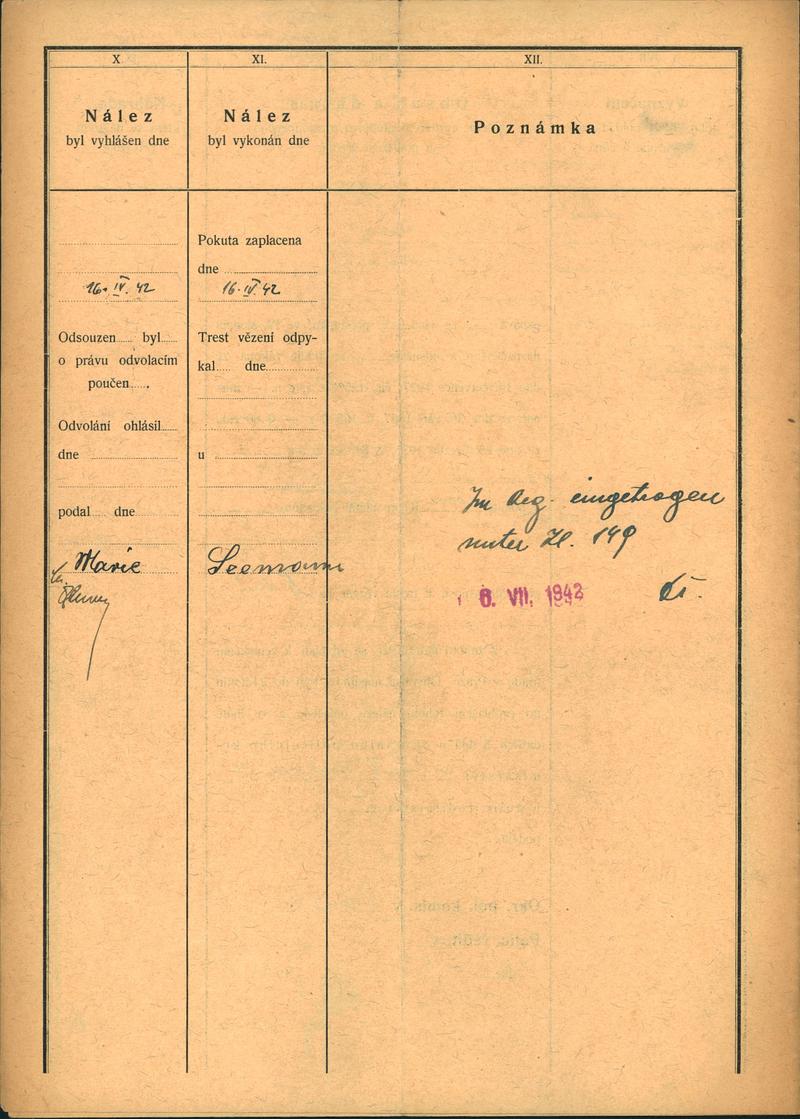 X.
Nález
byl vyhlášen dne
16. IV. 42
Odsouzen byl
o právu odvolacím
poučen
Odvolání ohlásil
dne
podal dne
Marie
XI.
Nález
byl vykonán dne
Pokuta zaplacena
dne
16. IV. 42
Trest vězení odpy-
kal dne
u
Seemann
XII.
Poznámka
Im Reg. eingetragen
unter Zl. 149
6. VII. 1942